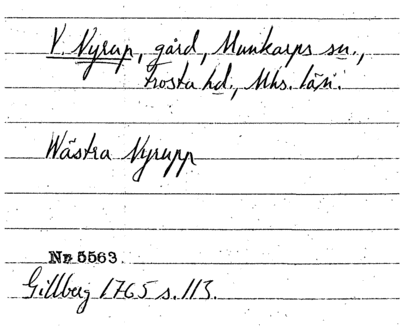 V. Nyrup, gård, Munkarps sn.,
Frosta hd., Mhs. län.
Wästra Nyrupp
Nr 5563.
Gillberg 1765 s. 113.